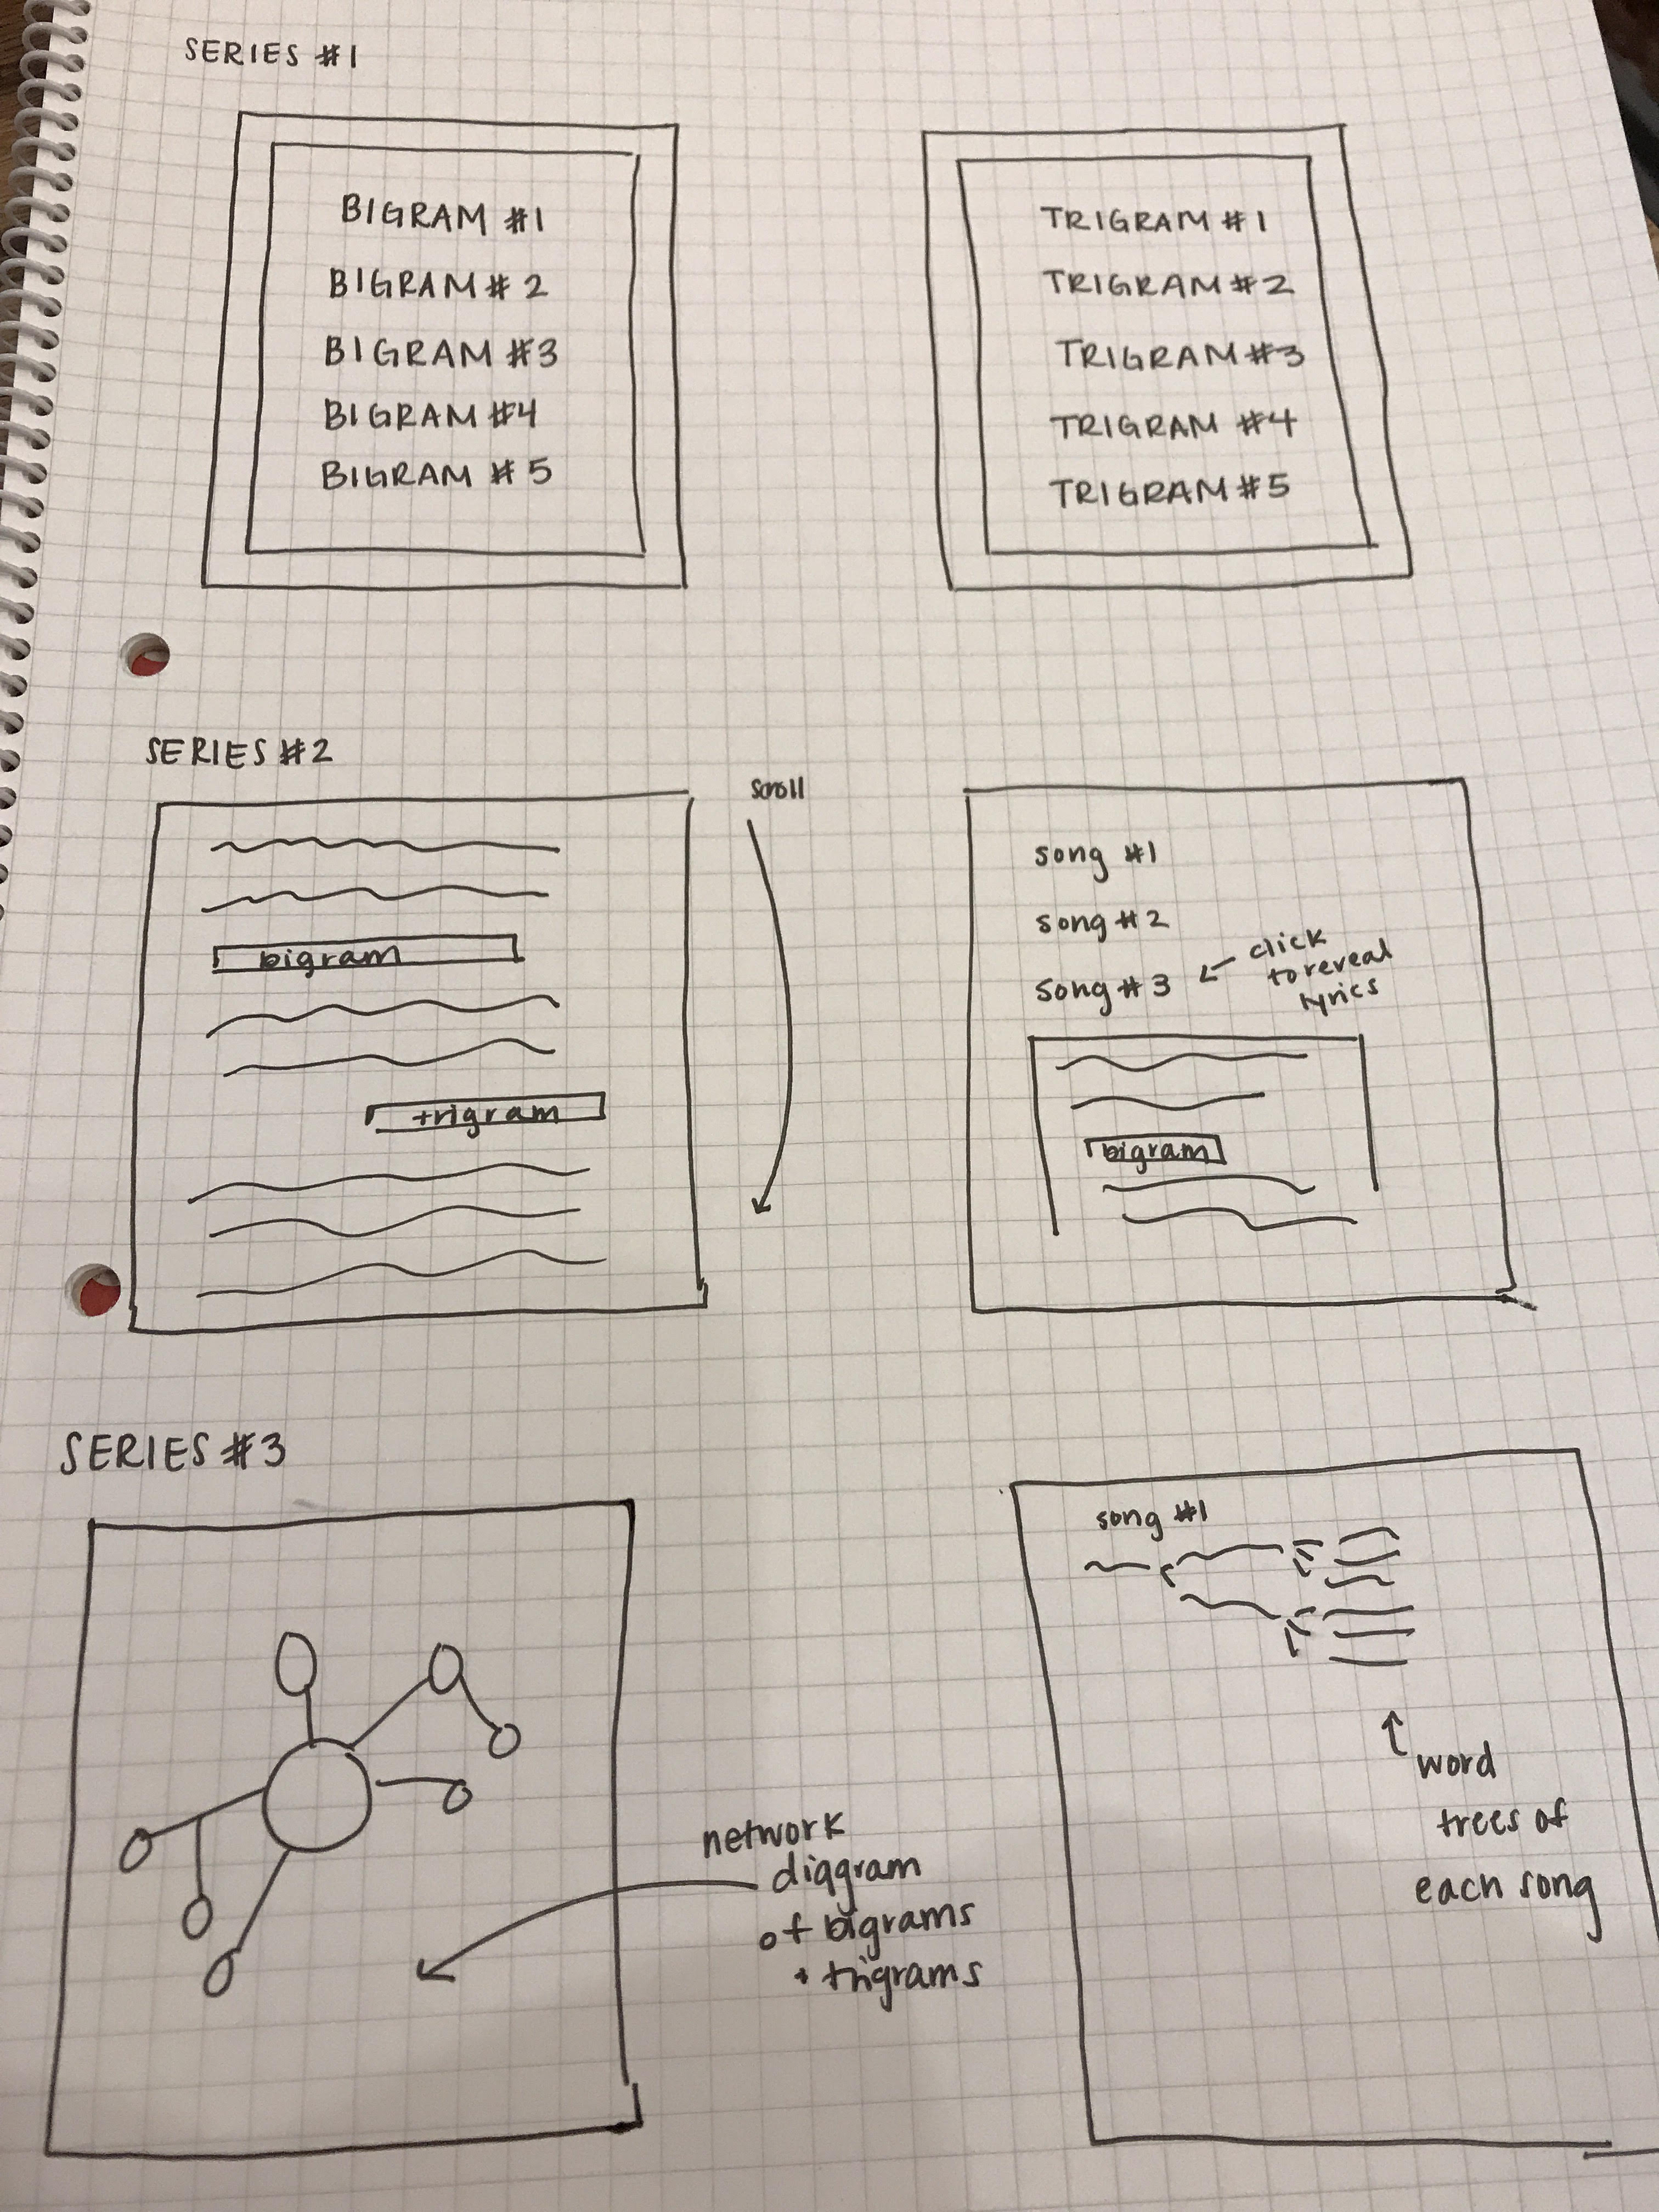 SERIES #1
BIGRAM #1
BIGRAM # 2
BIGRAM #3
BIGRAM #4
BIGRAM # 5
TRIGRAM #1
TRIGRAM #2
TRIGRAM #3
TRIGRAM #4
TRIGRAM #5
SERIES #2
bigram
trigram
scroll
song #1
song #2
song #3
click
to reveal
lyrics
bigram
SERIES #3
network
diagram
of bigrams
+ trigrams
song #1
word
trees of
each song